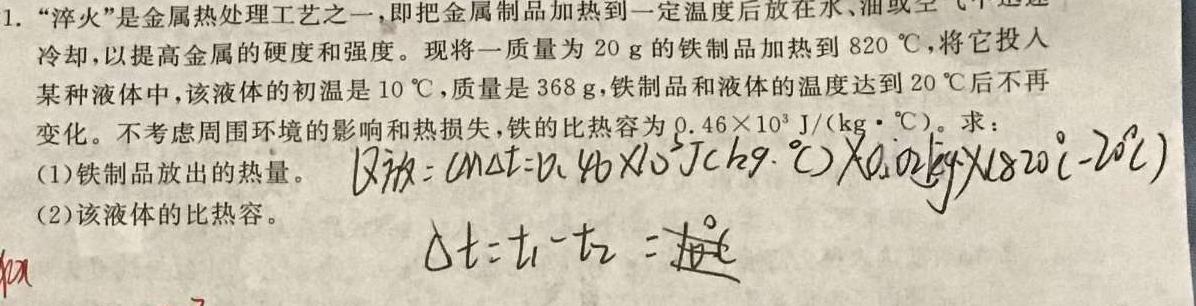 1. “淬火”是金属热处理工艺之一,即把金属制品加热到一定温度后放在水、油或空
冷却,以提高金属的硬度和强度。现将一质量为 20 g 的铁制品加热到 820 ℃,将它投入
某种液体中,该液体的初温是 10 ℃,质量是 368 g,铁制品和液体的温度达到 20 ℃后不再
变化。不考虑周围环境的影响和热损失,铁的比热容为 0.46×10³ J/(kg·℃)。求:
(1)铁制品放出的热量。 Q放=cmΔt=0.46×10³J(kg·℃)×0.02kg×(820℃-20℃)
(2)该液体的比热容。
Δt=t₁-t₂=